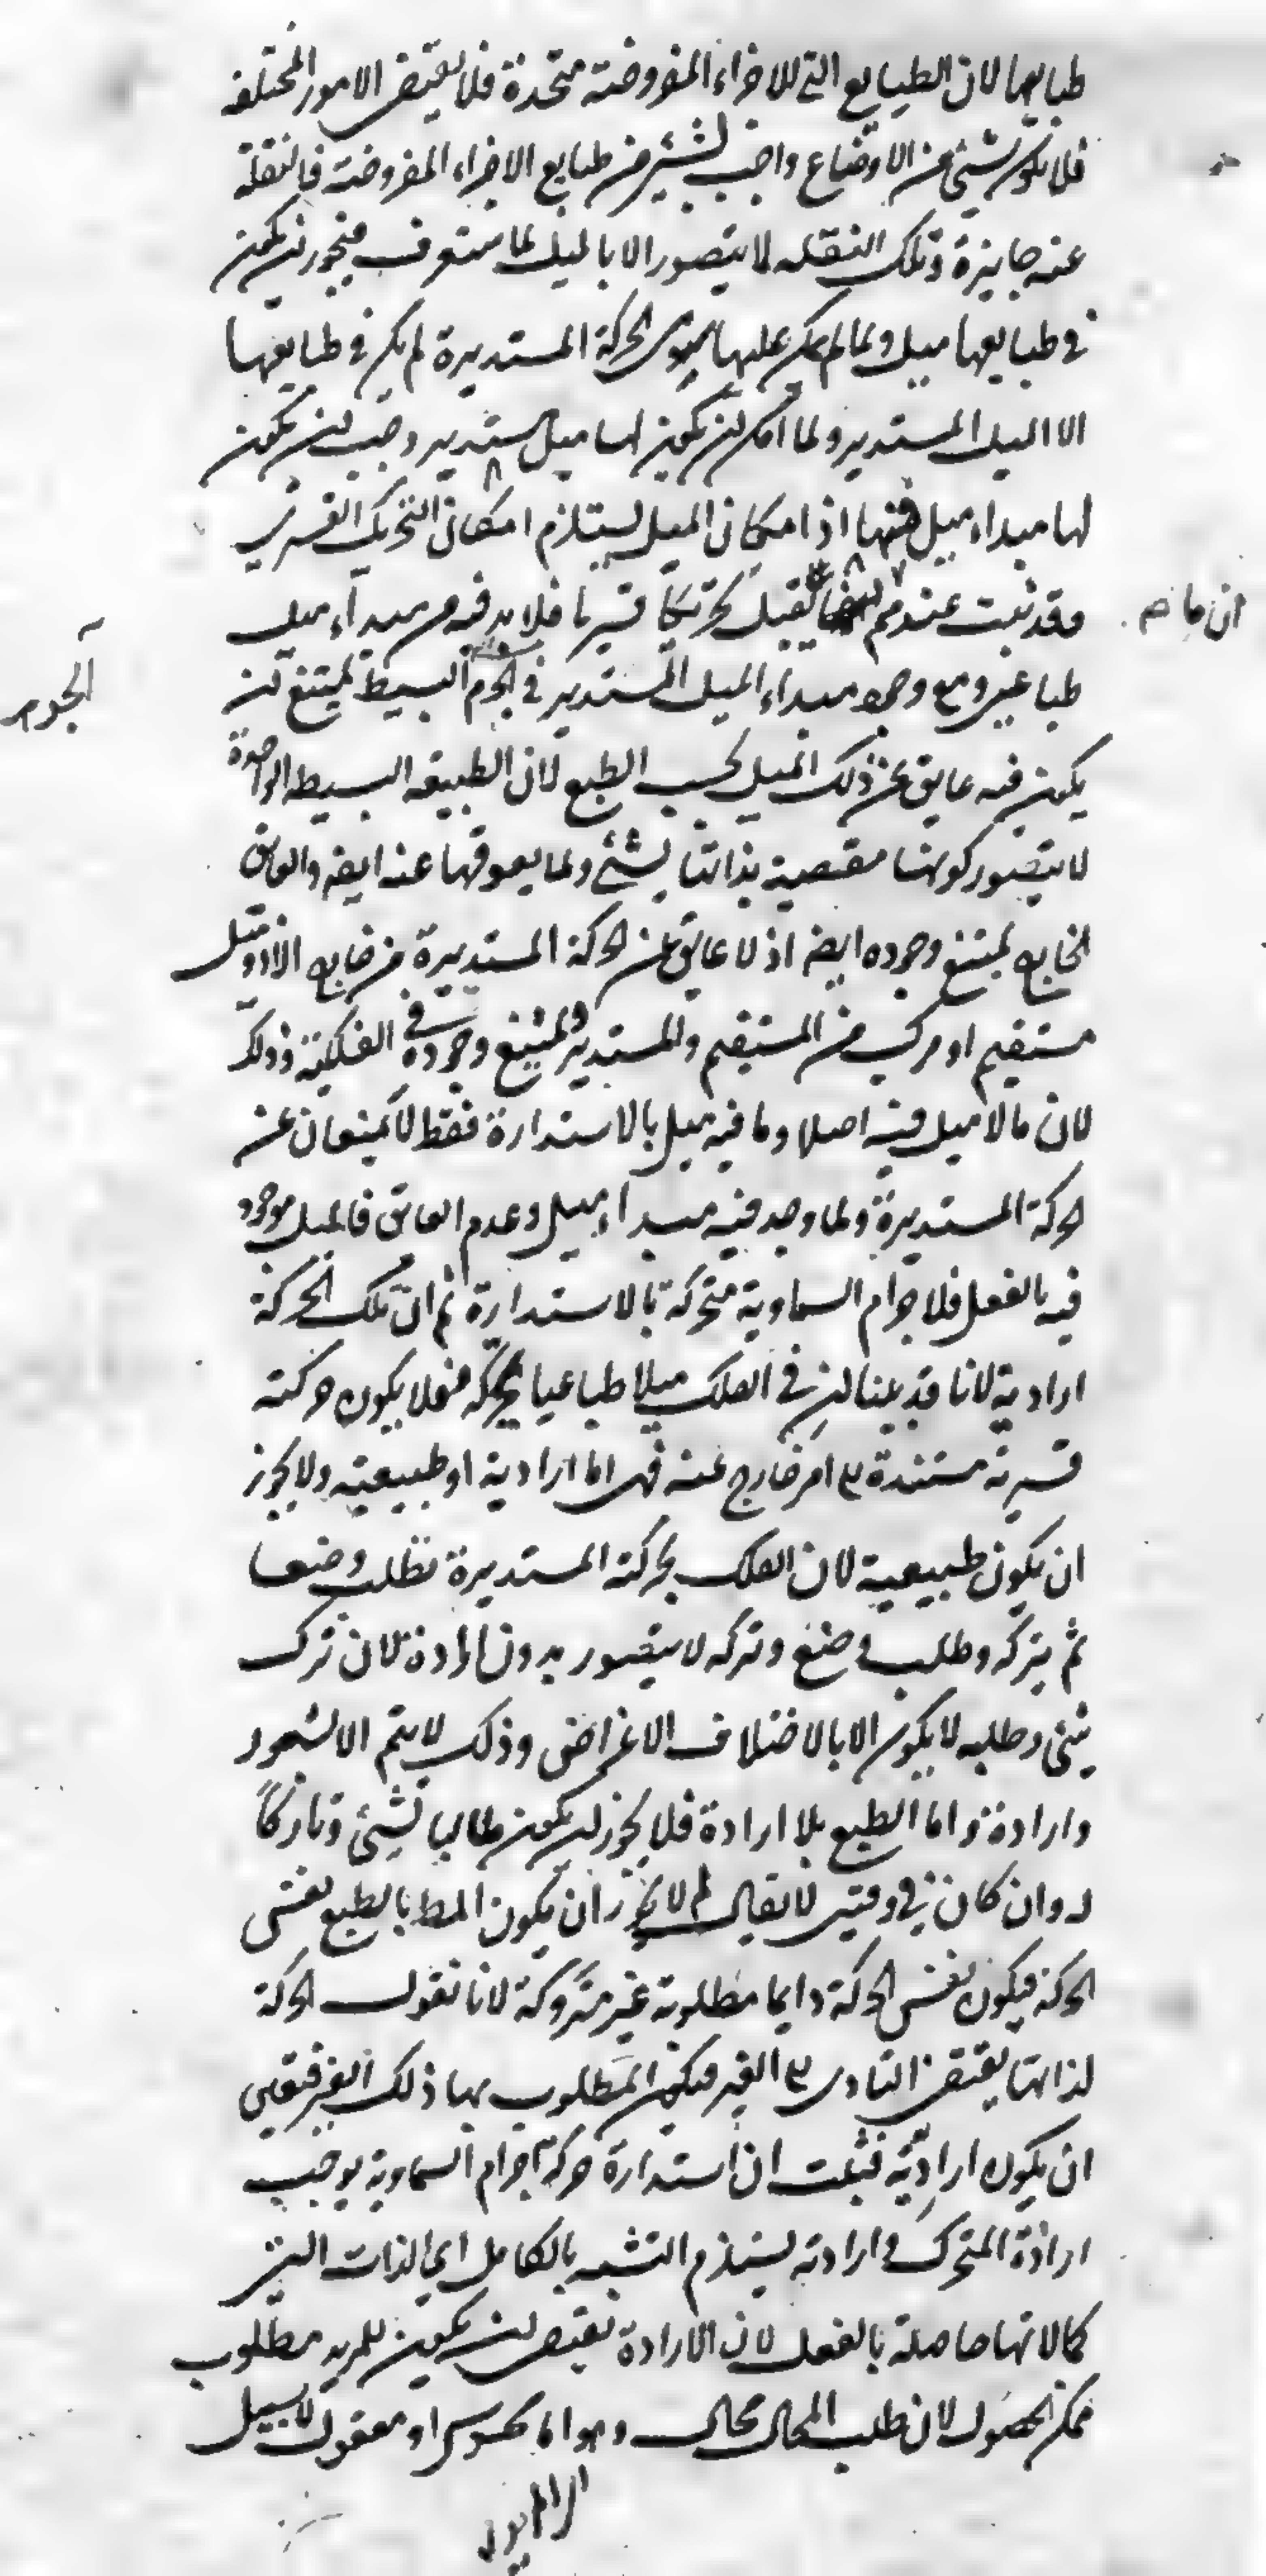 طبايعها لان الطبايع التي للاجزاء المفروضة متحدة فلا يقتضى الامور المختلفه
فلا يكون شيئ من الاوضاع واجب لشيئ من طبايع الاجزاء المفروضة فالنقلة
عنه جايزة وتلك النقله لا يتصور الا بالميل لما ستعرف فيجوز ان يكون
في طبايعها ميل ولما لم يكن عليها سوى الحركة المستديرة لم يكن في طبايعها
الا الميل المستدير ولما امكن ان يكون لها ميل مستدير وجب ان يكون
لها مبداء ميل فيها اذ امكان الميل يستلزم امكان التحريك القسرى
ان ما
وقد ثبت عندهم يقبل تحريكا قسريا فلا بد فيه من مبداء ميل
طباعي ومع وجود مبداء الميل المستدير في الجرم البسيط يمتنع ان
الجوهر
يكون فيه عايق عن ذلك الميل بحسب الطبع لان الطبيعه البسيطه الواحدة
لا يتصور كونها مقتضية بذاتها لشئ ولما يعوقها عنه ايضه والعايق
الخارج يمتنع وجوده ايضه اذ لا عايق عن الحركة المستديرة من خارج الا ذو ميل
مستقيم او مركب من المستقيم والمستدير يمتنع وجوده في الفلكية وذلك
لان ما لا ميل فيه اصلا وما فيه ميل بالاستدارة فقط لا يمنعان عن
الحركة المستديرة ولما وجد فيه مبداء ميل وعدم العايق فالميل موجود
فيه بالفعل فلاجرام السماوية متحركة بالاستدارة ثم ان تلك الحركة
ارادية لانا قد بينا ان في الفلك ميلا طباعيا يحركه فلا يكون حركته
قسرية مستندة الى امر خارج عنه فهى اما ارادية او طبيعيته ولا يجوز
ان يكون طبيعية لان الفلك بحركته المستديرة يطلب وضعا
ثم يتركه وطلب وضع وتركه لا يتصور بدون ارادة لان ترك
شئ وطلبه لا يكون الا بالاختلاف الاغراض وذلك لا يتم الا بشعور
وارادة واما الطبع بلا ارادة فلا يجوز ان يكون طالبا لشيئ وتاركاً
له وان كان في وقتين لا يقال لم لا يجوز ان يكون المط بالطبع نفس
الحركة فيكون نفس الحركة دايما مطلوبة غير متروكة لانا نقول الحركة
لذاتها يقتضى التادى الى الغير فيكون المطلوب بها ذلك الغير فتعين
ان يكون اراديّة فثبت ان استدارة حركة اجرام السماوية يوجب
ارادة المتحرك وارادته يستلزم التشبه بالكامل اى الذات التى
كمالاتها حاصلة بالفعل لان الارادة يقتضى ان يكون للمريد مطلوب
ممكن الحصول لان طلب المحال محال وهو اما محسوس او معقول لا سبيل